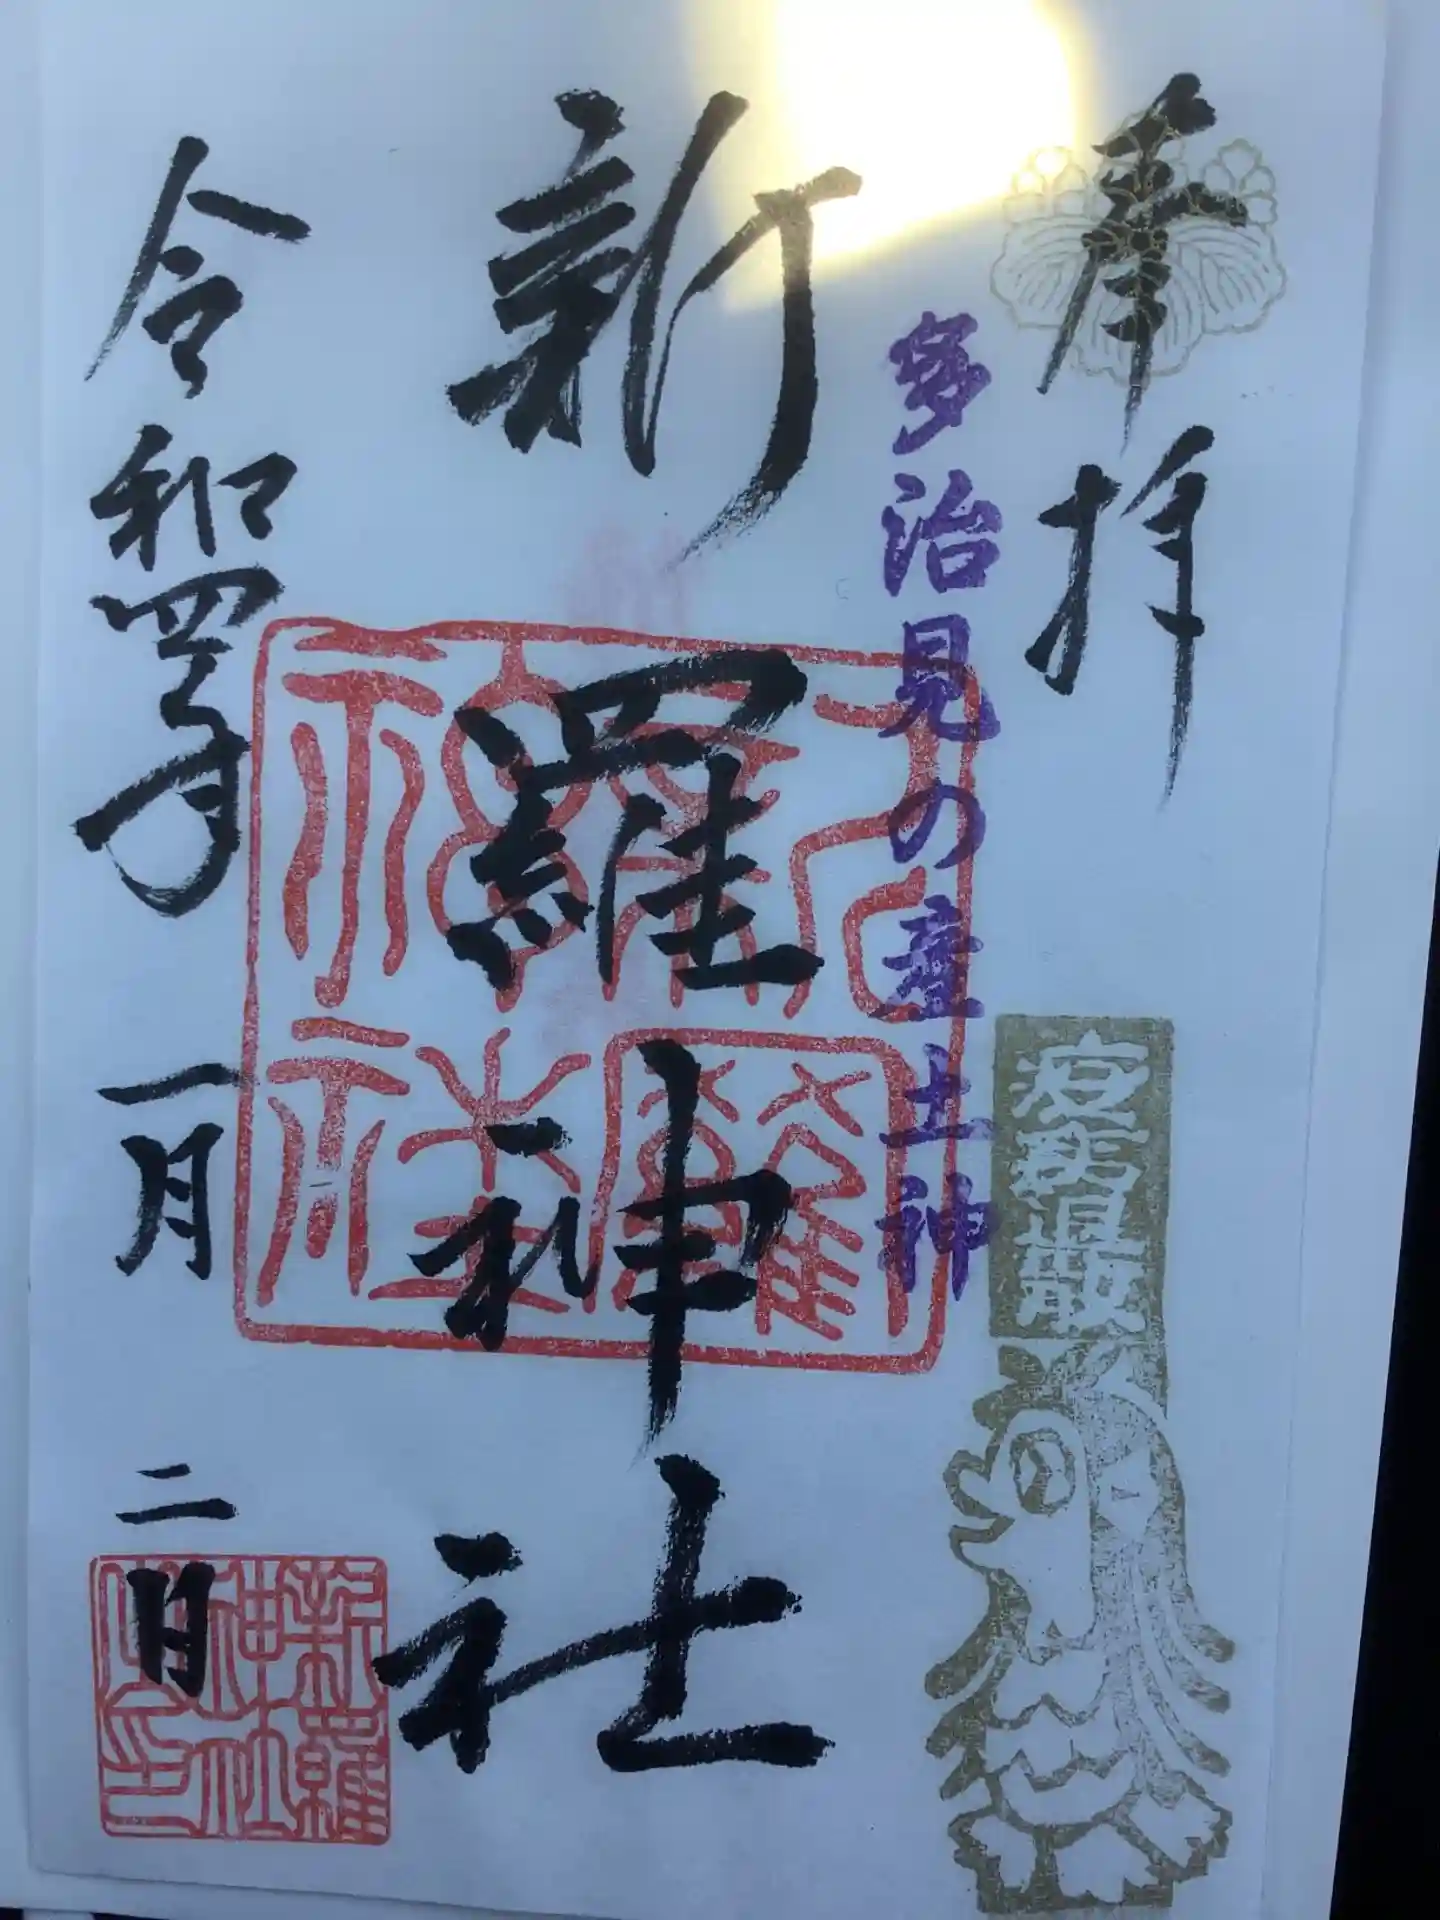 奉拝
多治見の産土神
疫病退散
新羅神社
新羅神社
新羅神社之印
令和四年一月二日